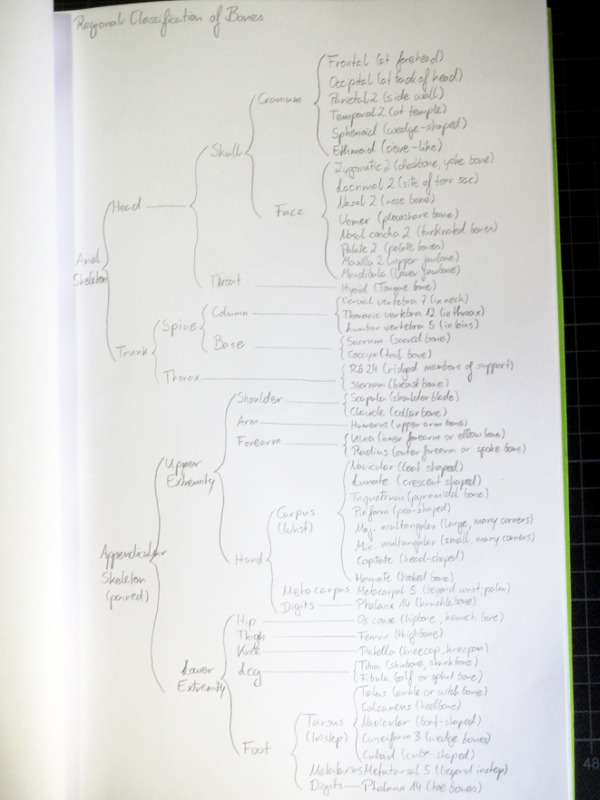 Regional Classification of Bones
Axial Skeleton
Head
Skull
Cranium
Frontal (at forehead)
Occipital (at back of head)
Parietal 2 (side wall)
Temporal 2 (at temple)
Sphenoid (wedge-shaped)
Ethmoid (sieve-like)
Face
Zygomatic 2 (cheekbone, yoke bone)
Lacrimal 2 (site of tear sac)
Nasal 2 (nose bone)
Vomer (plowshare bone)
Nasal concha 2 (turbinated bones)
Palate 2 (palate bones)
Maxilla 2 (upper jawbone)
Mandibula (lower jawbone)
Throat
Hyoid (Tongue bone)
Trunk
Spine
Column
Cervical vertebra 7 (in neck)
Thoracic vertebra 12 (in thorax)
Lumbar vertebra 5 (in loins)
Base
Sacrum (sacred bone)
Coccyx (tail bone)
Thorax
Rib 24 (ridged members of support)
Sternum (breast bone)
Appendicular Skeleton (paired)
Upper Extremity
Shoulder
Scapula (shoulder blade)
Clavicle (collar bone)
Arm
Humerus (upper arm bone)
Forearm
Ulna (inner forearm or elbow bone)
Radius (outer forearm or spoke bone)
Hand
Carpus (Wrist)
Navicular (boat shaped)
Lunate (crescent shaped)
Triquetrum (pyramidal bone)
Pisiform (pea-shaped)
Maj. multangular (large, many corners)
Min. multangular (small, many corners)
Capitate (head-shaped)
Hamate (hooked bone)
Metacarpus
Metacarpal 5 (beyond wrist; palm)
Digits
Phalanx 14 (knuckle bone)
Lower Extremity
Hip
Os coxae (hipbone, haunch bone)
Thigh
Femur (thighbone)
Knee
Patella (kneecap, kneepan)
Leg
Tibia (shinbone, shank bone)
Fibula (calf or splint bone)
Foot
Tarsus (Instep)
Talus (ankle or witch bone)
Calcaneus (heelbone)
Navicular (boat-shaped)
Cuneiform 3 (wedge bones)
Cuboid (cube-shaped)
Metatarsus
Metatarsal 5 (beyond instep)
Digits
Phalanx 14 (toe bones)
48